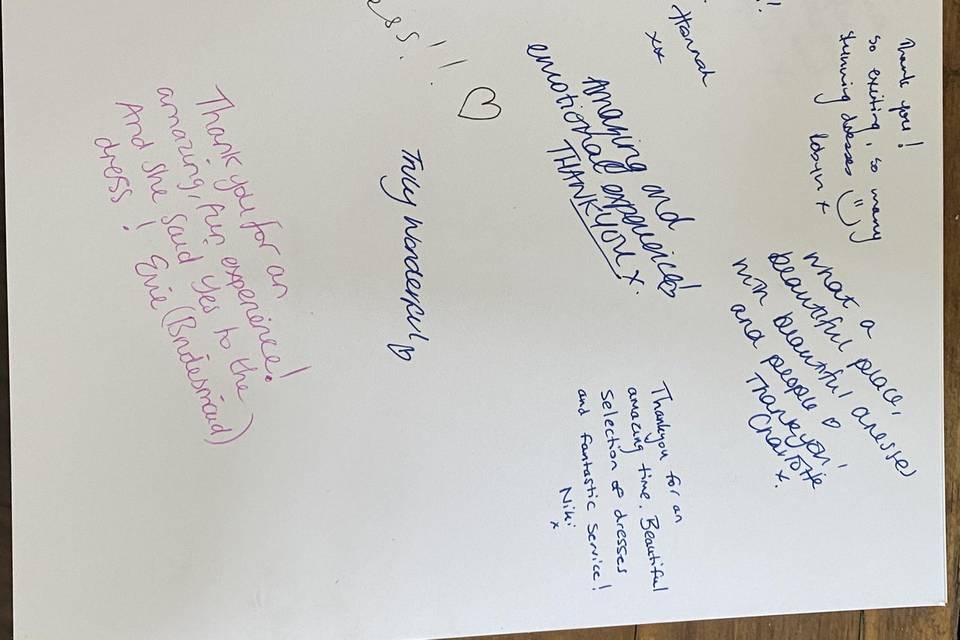 Thank you!
so exciting, so many
stunning dresses
Robyn x
Hannah
xx
What a
beautiful place,
beautiful dresses
with beautiful
and people ♡
Thankyou,
Charlotte
x.
Amazing and
emotional experience!
THANKYOU x.
Thankyou for an
amazing time. Beautiful
selection of dresses
and fantastic service!
Niki
x
ess!!
♡
Truly Wonderful ♡
Thank you for an
amazing, fun experience!
And she said yes to the
dress! Evie (Bridesmaid)